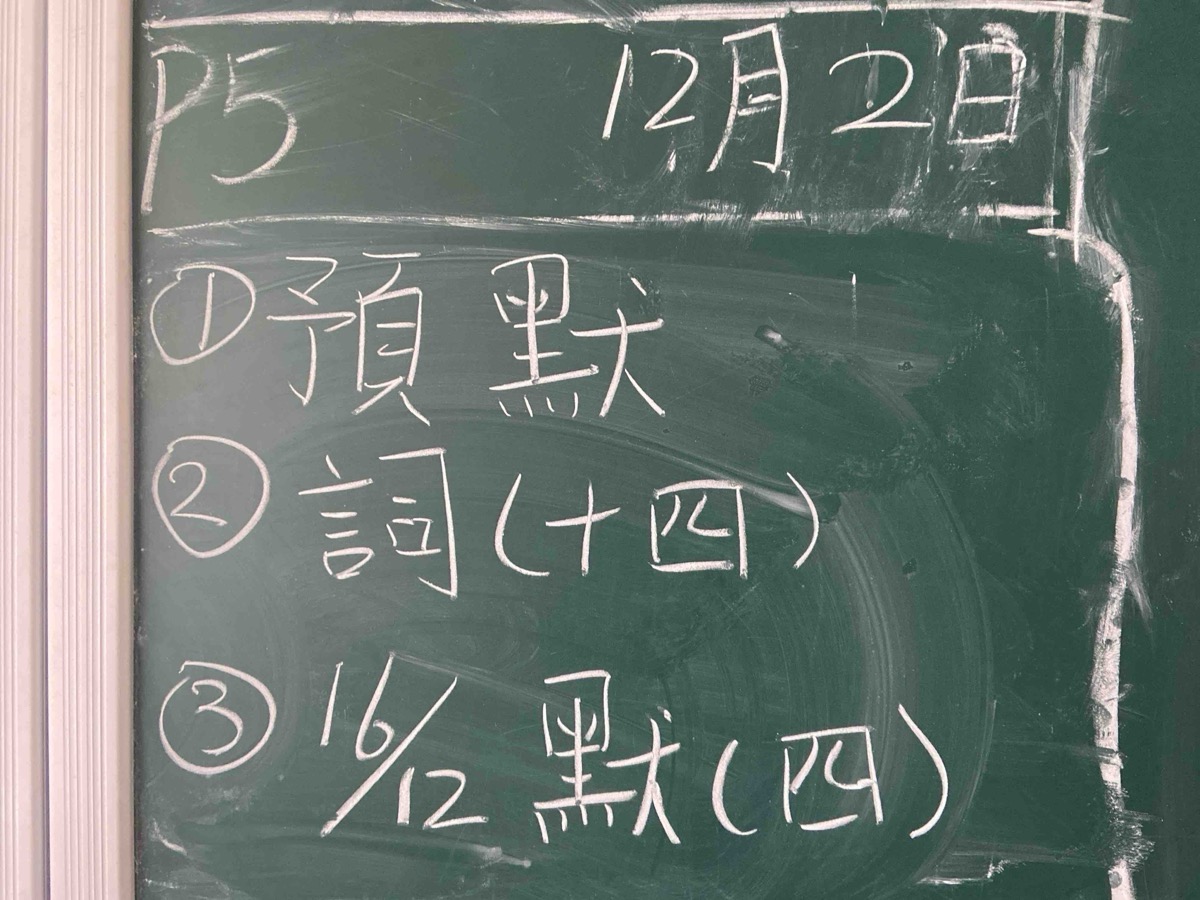 P5 12月2日
① 預默
② 詞(十四)
③ 16/12 默(四)